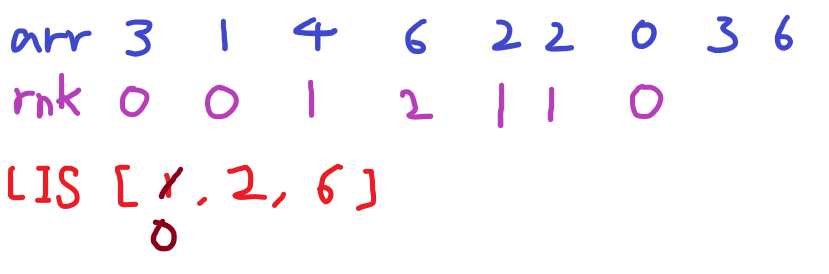 arr 3 1 4 6 2 2 0 3 6
rnk 0 0 1 2 1 1 0
LIS [ 1, 2, 6 ]
0